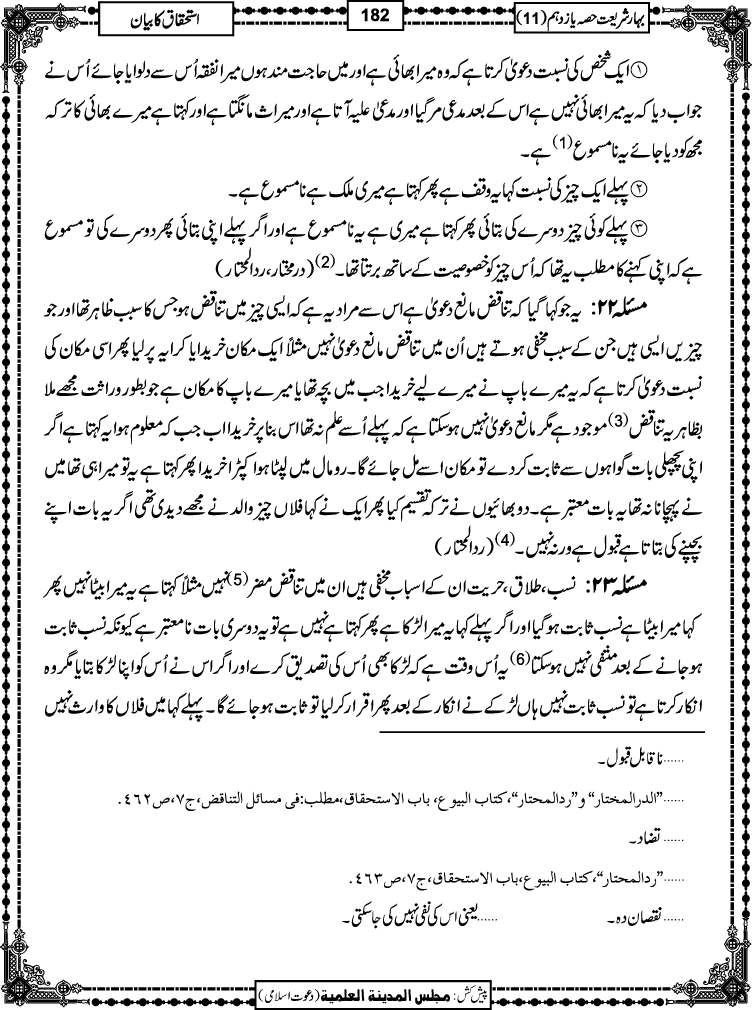 بہار شریعت حصہ یازدہم (11)
182
استحقاق کا بیان
①ایک شخص کی نسبت دعویٰ کرتا ہے کہ وہ میرا بھائی ہے اور میں حاجت مند ہوں میرا نفقہ اُس سے دلوایا جائے اُس نے
جواب دیا کہ یہ میرا بھائی نہیں ہے اس کے بعد مدعی مرگیا اور مدعیٰ علیہ آتا ہے اور میراث مانگتا ہے اور کہتا ہے میرے بھائی کا ترکہ
مجھ کو دیا جائے یہ نامسموع(1) ہے۔
②پہلے ایک چیز کی نسبت کہا یہ وقف ہے پھر کہتا ہے میری ملک ہے نامسموع ہے۔
③پہلے کوئی چیز دوسرے کی بتائی پھر کہتا ہے میری ہے یہ نامسموع ہے اور اگر پہلے اپنی بتائی پھر دوسرے کی تو مسموع
ہے کہ اپنی کہنے کا مطلب یہ تھا کہ اُس چیز کو خصوصیت کے ساتھ برتتا تھا۔(2) (درمختار، ردالمحتار)
مسئلہ ۲۲: یہ جو کہا گیا کہ تناقض مانع دعویٰ ہے اس سے مراد یہ ہے کہ ایسی چیز میں تناقض ہو جس کا سبب ظاہر تھا اور جو
چیزیں ایسی ہیں جن کے سبب مخفی ہوتے ہیں اُن میں تناقض مانع دعویٰ نہیں مثلاً ایک مکان خریدا یا کرایہ پر لیا پھر اسی مکان کی
نسبت دعویٰ کرتا ہے کہ یہ میرے باپ نے میرے لیے خریدا جب میں بچہ تھا یا میرے باپ کا مکان ہے جو بطور وراثت مجھے ملا
بظاہر یہ تناقض(3) موجود ہے مگر مانع دعویٰ نہیں ہوسکتا ہے کہ پہلے اُسے علم نہ تھا اس بنا پر خریدا اب جب کہ معلوم ہوا یہ کہتا ہے اگر
اپنی پچھلی بات گواہوں سے ثابت کردے تو مکان اسے مل جائے گا۔ رومال میں لپٹا ہوا کپڑا خریدا پھر کہتا ہے یہ تو میرا ہی تھا میں
نے پہچانا نہ تھا یہ بات معتبر ہے۔ دو بھائیوں نے ترکہ تقسیم کیا پھر ایک نے کہا فلاں چیز والد نے مجھے دیدی تھی اگر یہ بات اپنے
بچپنے کی بتاتا ہے قبول ہے ورنہ نہیں۔(4) (ردالمحتار)
مسئلہ ۲۳: نسب، طلاق، حریت ان کے اسباب مخفی ہیں ان میں تناقض مضر(5) نہیں مثلاً کہتا ہے یہ میرا بیٹا نہیں پھر
کہا میرا بیٹا ہے نسب ثابت ہوگیا اور اگر پہلے کہا یہ میرا لڑکا ہے پھر کہتا ہے نہیں ہے تو یہ دوسری بات نامعتبر ہے کیونکہ نسب ثابت
ہوجانے کے بعد منتفی نہیں ہوسکتا(6) یہ اُس وقت ہے کہ لڑکا بھی اُس کی تصدیق کرے اور اگر اس نے اُس کو اپنا لڑکا بتایا مگر وہ
انکار کرتا ہے تو نسب ثابت نہیں ہاں لڑکے نے انکار کے بعد پھر اقرار کرلیا تو ثابت ہوجائے گا۔ پہلے کہا میں فلاں کا وارث نہیں
......ناقابل قبول۔
......"الدرالمختار" و"ردالمحتار"، کتاب البیوع، باب الاستحقاق، مطلب: فی مسائل التناقض، ج۷، ص۴۶۲.
......تضاد۔
......"ردالمحتار"، کتاب البیوع، باب الاستحقاق، ج۷، ص۴۶۳.
......نقصان دہ۔ ......یعنی اس کی نفی نہیں کی جاسکتی۔
پیش کش: مجلس المدینة العلمیة (دعوت اسلامی)